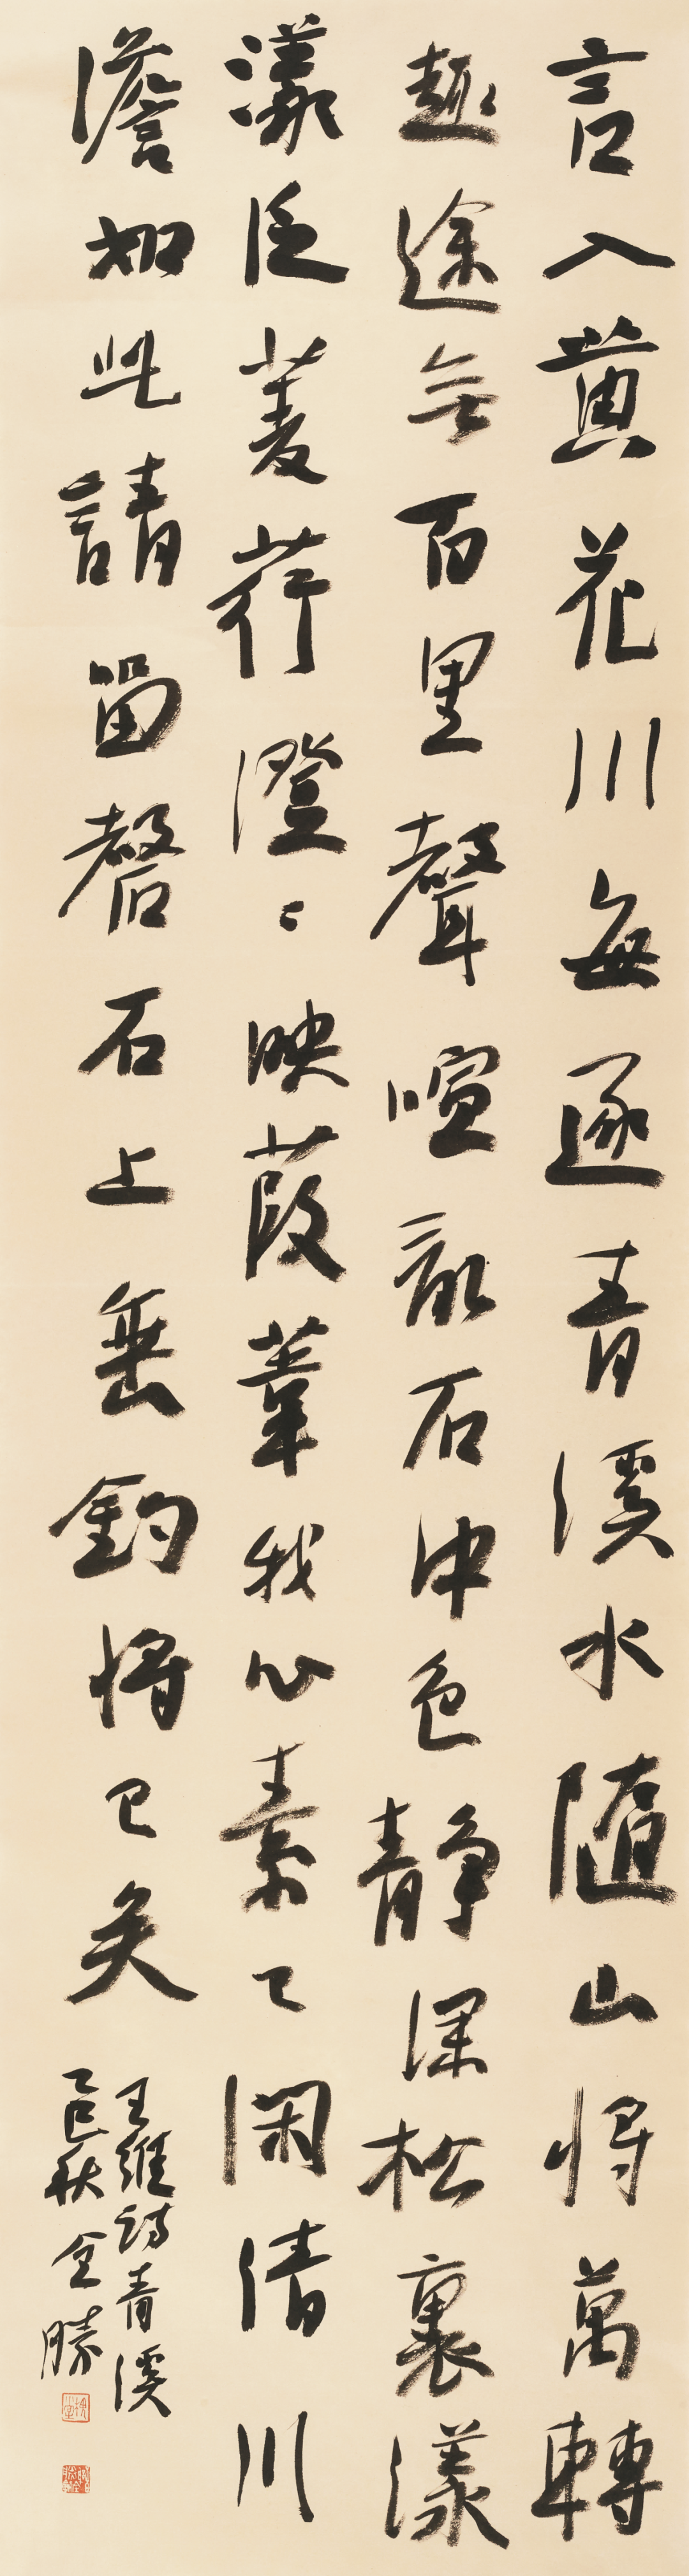 言入黄花川每逐青溪水隨山將萬轉
趣途無百里聲喧亂石中色靜深松裏漾
漾泛菱荇澄〻映葭葦我心素已閑清川
澹如此請留磐石上垂釣將已矣
王維詩青溪
乙巳秋全勝